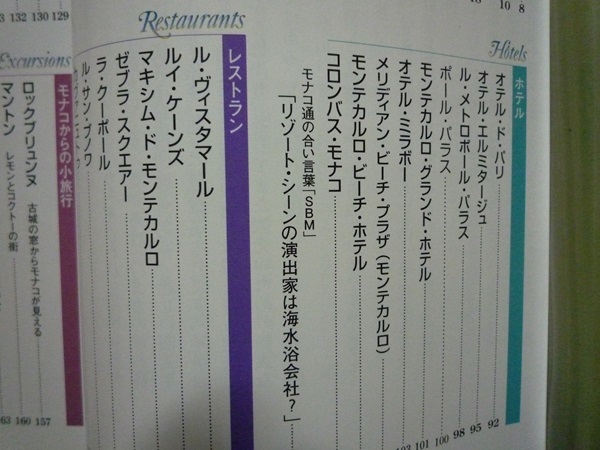 10 8
Hôtels
ホテル
オテル・ド・パリ 92
オテル・エルミタージュ 95
ル・メトロポール・パラス 98
ポール・パラス 100
モンテカルロ・グランド・ホテル 101
オテル・ミラボー
メリディアン・ビーチ・プラザ（モンテカルロ）
モンテカルロ・ビーチ・ホテル
コロンバス・モナコ
モナコ通の合い言葉「SBM」
「リゾート・シーンの演出家は海水浴会社？」
Restaurants
レストラン
ル・ヴィスタマール
ルイ・ケーンズ
マキシム・ド・モンテカルロ
ゼブラ・スクエアー
ラ・クーポール
ル・サン・ブノワ
132 130 129
Excursions
モナコからの小旅行
ロックブリュンヌ 古城の窓からモナコが見える 157
マントン レモンとコクトーの街 160